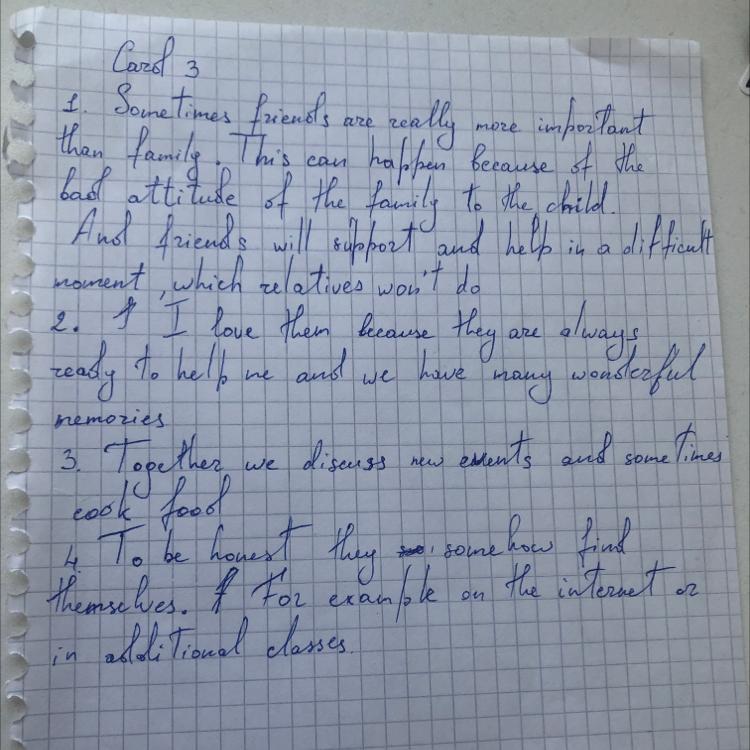 Card 3
1. Sometimes friends are really more important
than family. This can happen because of the
bad attitude of the family to the child.
And friends will support and help in a difficult
moment, which relatives won't do
2. I love them because they are always
ready to help me and we have many wonderful
memories
3. Together we discuss new events and sometimes
cook food
4. To be honest they somehow find
themselves. For example on the internet or
in additional classes.